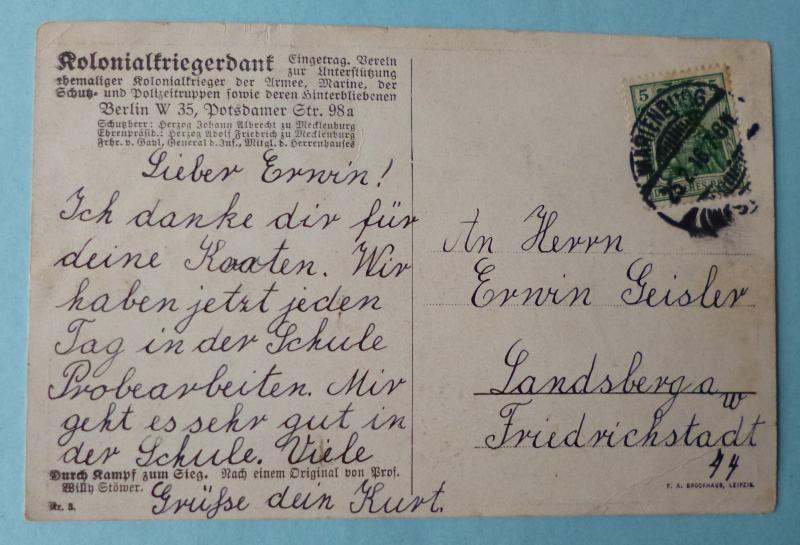 Kolonialkriegerdank Eingetrag. Verein
zur Unterstützung
ehemaliger Kolonialkrieger der Armee, Marine, der
Schutz- und Polizeitruppen sowie deren Hinterbliebenen
Berlin W 35, Potsdamer Str. 98a
Schutzherr: Herzog Johann Albrecht zu Mecklenburg
Ehrenpräsid.: Herzog Adolf Friedrich zu Mecklenburg
Frhr. v. Gayl, General d. Inf., Mitgl. d. Herrenhauses
Lieber Erwin!
Ich danke dir für
deine Kaaten. Wir
haben jetzt jeden
Tag in der Schule
Probearbeiten. Mir
geht es sehr gut in
der Schule. Viele
Grüße dein Kurt.
Durch Kampf zum Sieg. Nach einem Original von Prof.
Willy Stöwer.
Nr. 3.
5
MARIENBURG
An Herrn
Erwin Geisler
Landsberg a w
Friedrichstadt
44
F. A. BROCKHAUS, LEIPZIG.